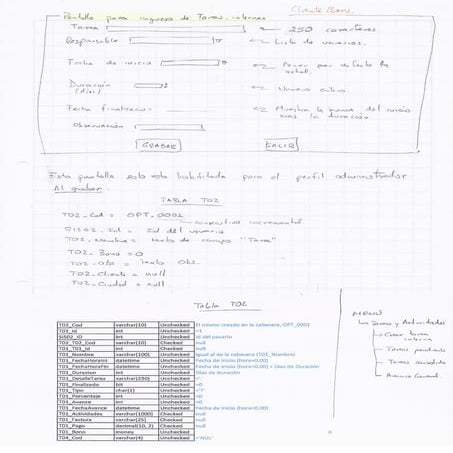 Cliente Iberc.
Pantalla para ingreso de Tareas internas
Tarea ← 250 caracteres
Responsable ← Lista de usuarios.
Fecha de inicio ← Poner por defecto la actual.
Duración (días) ← Numero entero.
Fecha finalización ← Muestra la suma del inicio mas la duración
Observación
GRABAR SALIR
Esta pantalla solo esta habilitada para el perfil administrador
Al grabar.
TABLA T02
T02_Cod = OPT_0001
consecutivo incremental
SIS02_Id = Id del usuario
T02_Nombre = texto de campo "Tarea"
T02_Bono = 0
T02_Obs = texto Obs.
T02_Cliente = null
T02_Ciudad = null
Tabla T01
T02_Cod varchar(10) Unchecked El mismo creado en la cabecera, OPT_0001
T01_Id int Unchecked =1
SIS02_ID int Unchecked Id del usuario
T02_T02_Cod varchar(10) Checked null
T01_T01_Id int Checked null
T01_Nombre varchar(100) Unchecked Igual al de la cabecera (T02_Nombre)
T01_FechaHoraIni datetime Unchecked Fecha de inicio (hora=0.00)
T01_FechaHoraFin datetime Unchecked Fecha de inicio (hora=0.00) + Dias de Duración
T01_Duracion int Unchecked Dias de duración
T01_DetalleTarea varchar(250) Unchecked
T01_Finalizado bit Unchecked =0
T01_Tipo char(1) Unchecked
T01_Porcentaje int Unchecked =0
T01_Avance int Unchecked =0
T01_FechaAvance datetime Unchecked Fecha de inicio (hora=0.00)
T01_Actividades varchar(1000) Checked null
T01_Factura varchar(25) Checked null
T01_Pago decimal(10, 2) Checked null
T01_Bono money Unchecked
T04_Cod varchar(4) Unchecked ='NUL'
MENÚ
Tareas y Actividades
Crear tarea interna
Tareas pendientes
Tareas
Avance General.